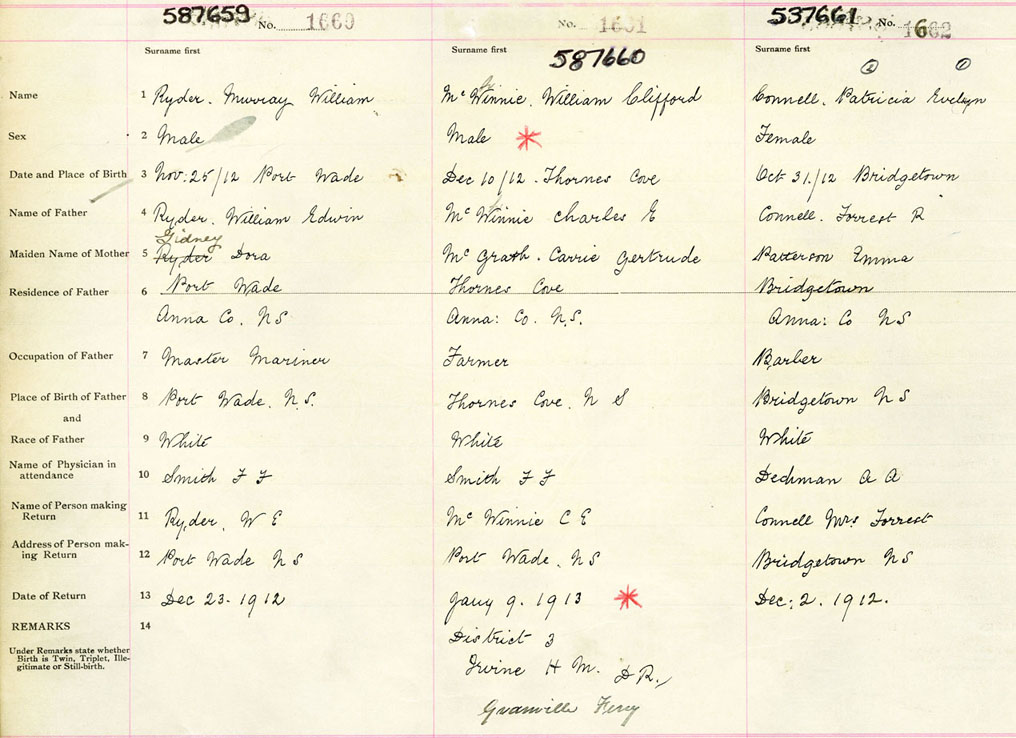 587659 No. 1660 No. 1661 537661 No. 1662
Surname first Surname first Surname first
587660
2 1
Name 1 Ryder. Murray William Mc Winnie. William Clifford Connell. Patricia Evelyn
Sex 2 Male Male * Female
Date and Place of Birth 3 Nov: 25/12 Port Wade Dec 10/12. Thornes Cove Oct 31./12 Bridgetown
Name of Father 4 Ryder. William Edwin Mc Winnie Charles E Connell. Forrest R
Gidney
Maiden Name of Mother 5 Ryder Dora Mc Grath. Carrie Gertrude Patterson Emma
Residence of Father 6 Port Wade Thornes Cove Bridgetown
Anna Co. NS Anna: Co. N.S. Anna: Co NS
Occupation of Father 7 Master Mariner Farmer Barber
Place of Birth of Father 8 Port Wade. N.S. Thornes Cove. N S Bridgetown NS
and
Race of Father 9 White White White
Name of Physician in
attendance 10 Smith F F Smith F F Dechman A A
Name of Person making
Return 11 Ryder. W E Mc Winnie C E Connell Mrs Forrest
Address of Person mak-
ing Return 12 Port Wade NS Port Wade. NS Bridgetown NS
Date of Return 13 Dec 23- 1912 Jany 9. 1913 * Dec: 2. 1912.
REMARKS 14 District 3
Under Remarks state whether
Birth is Twin, Triplet, Ille-
gitimate or Still-birth.
Irvine H M. D R.,
Granville Ferry